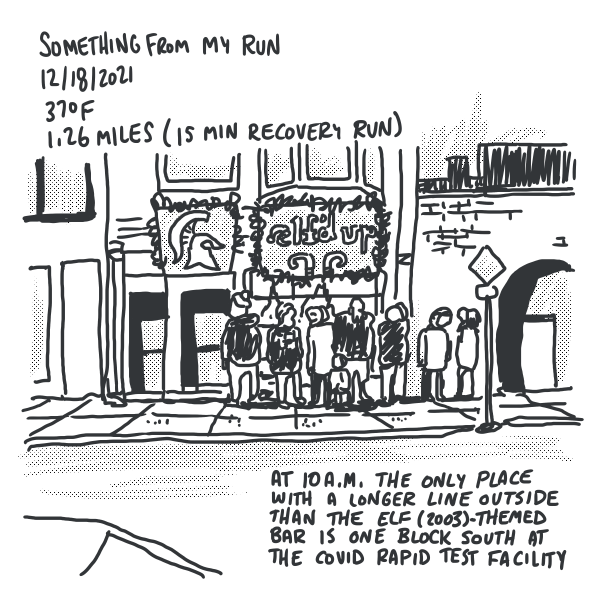 SOMETHING FROM MY RUN
12/18/2021
37°F
1.26 MILES (15 MIN RECOVERY RUN)
elfd up
AT 10 A.M. THE ONLY PLACE
WITH A LONGER LINE OUTSIDE
THAN THE ELF (2003)-THEMED
BAR IS ONE BLOCK SOUTH AT
THE COVID RAPID TEST FACILITY